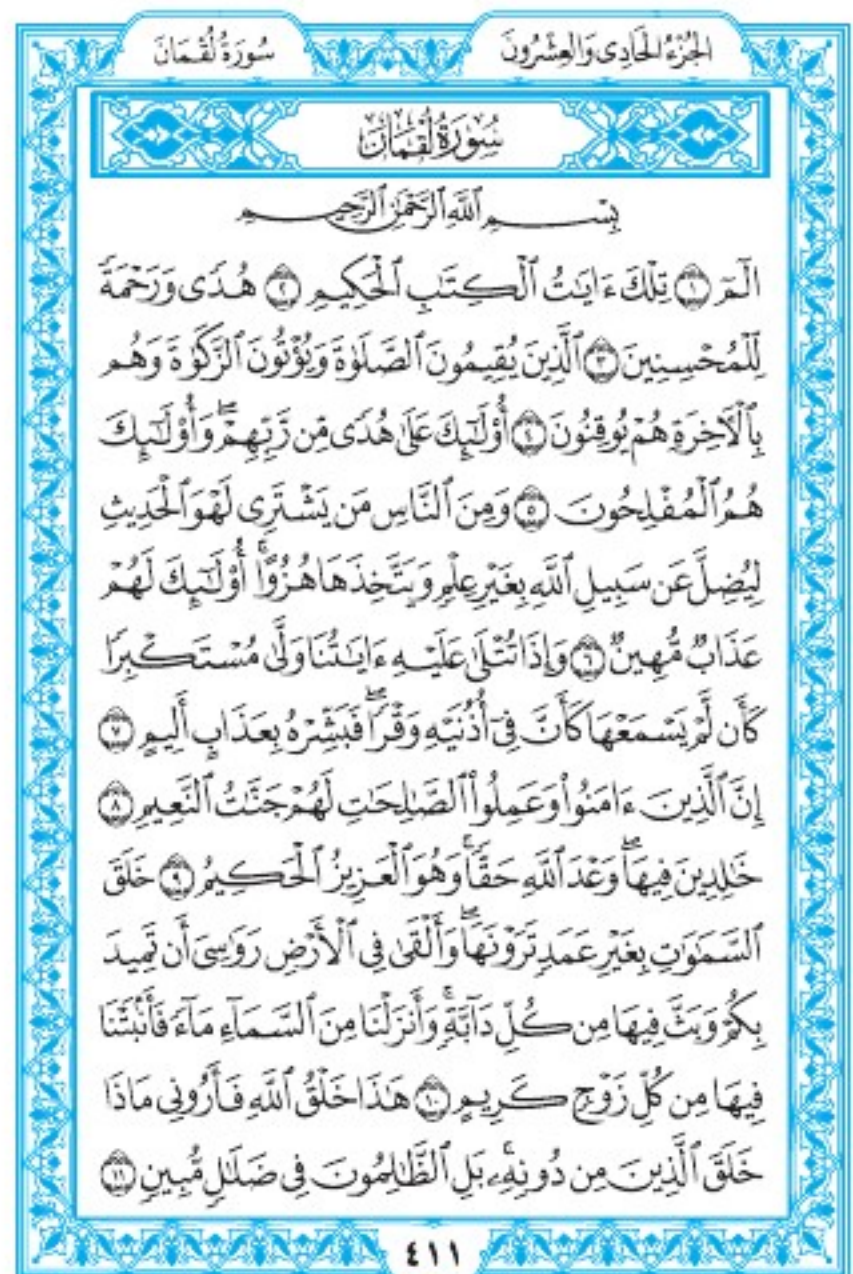 الجُزْءُ الحَادِى وَالعِشْرُونَ
سُورَةُ لُقْمَانَ
سُورَةُ لُقْمَانَ
بِسْمِ ٱللَّهِ ٱلرَّحْمَٰنِ ٱلرَّحِيمِ
الٓمٓ ١ تِلْكَ ءَايَٰتُ ٱلْكِتَٰبِ ٱلْحَكِيمِ ٢ هُدًى وَرَحْمَةً
لِّلْمُحْسِنِينَ ٣ ٱلَّذِينَ يُقِيمُونَ ٱلصَّلَوٰةَ وَيُؤْتُونَ ٱلزَّكَوٰةَ وَهُم
بِٱلْأَخِرَةِ هُمْ يُوقِنُونَ ٤ أُوْلَٰٓئِكَ عَلَىٰ هُدًى مِّن رَّبِّهِمْۖ وَأُوْلَٰٓئِكَ
هُمُ ٱلْمُفْلِحُونَ ٥ وَمِنَ ٱلنَّاسِ مَن يَشْتَرِى لَهْوَ ٱلْحَدِيثِ
لِيُضِلَّ عَن سَبِيلِ ٱللَّهِ بِغَيْرِ عِلْمٍ وَيَتَّخِذَهَا هُزُوًاۚ أُوْلَٰٓئِكَ لَهُمْ
عَذَابٌ مُّهِينٌ ٦ وَإِذَا تُتْلَىٰ عَلَيْهِ ءَايَٰتُنَا وَلَّىٰ مُسْتَكْبِرًا
كَأَن لَّمْ يَسْمَعْهَا كَأَنَّ فِىٓ أُذُنَيْهِ وَقْرًاۖ فَبَشِّرْهُ بِعَذَابٍ أَلِيمٍ ٧
إِنَّ ٱلَّذِينَ ءَامَنُواْ وَعَمِلُواْ ٱلصَّٰلِحَٰتِ لَهُمْ جَنَّٰتُ ٱلنَّعِيمِ ٨
خَٰلِدِينَ فِيهَاۖ وَعْدَ ٱللَّهِ حَقًّاۚ وَهُوَ ٱلْعَزِيزُ ٱلْحَكِيمُ ٩ خَلَقَ
ٱلسَّمَٰوَٰتِ بِغَيْرِ عَمَدٍ تَرَوْنَهَاۖ وَأَلْقَىٰ فِى ٱلْأَرْضِ رَوَٰسِىَ أَن تَمِيدَ
بِكُمْ وَبَثَّ فِيهَا مِن كُلِّ دَآبَّةٍۚ وَأَنزَلْنَا مِنَ ٱلسَّمَآءِ مَآءً فَأَنۢبَتْنَا
فِيهَا مِن كُلِّ زَوْجٍ كَرِيمٍ ١٠ هَٰذَا خَلْقُ ٱللَّهِ فَأَرُونِى مَاذَا
خَلَقَ ٱلَّذِينَ مِن دُونِهِۦۚ بَلِ ٱلظَّٰلِمُونَ فِى ضَلَٰلٍ مُّبِينٍ ١١
٤١١